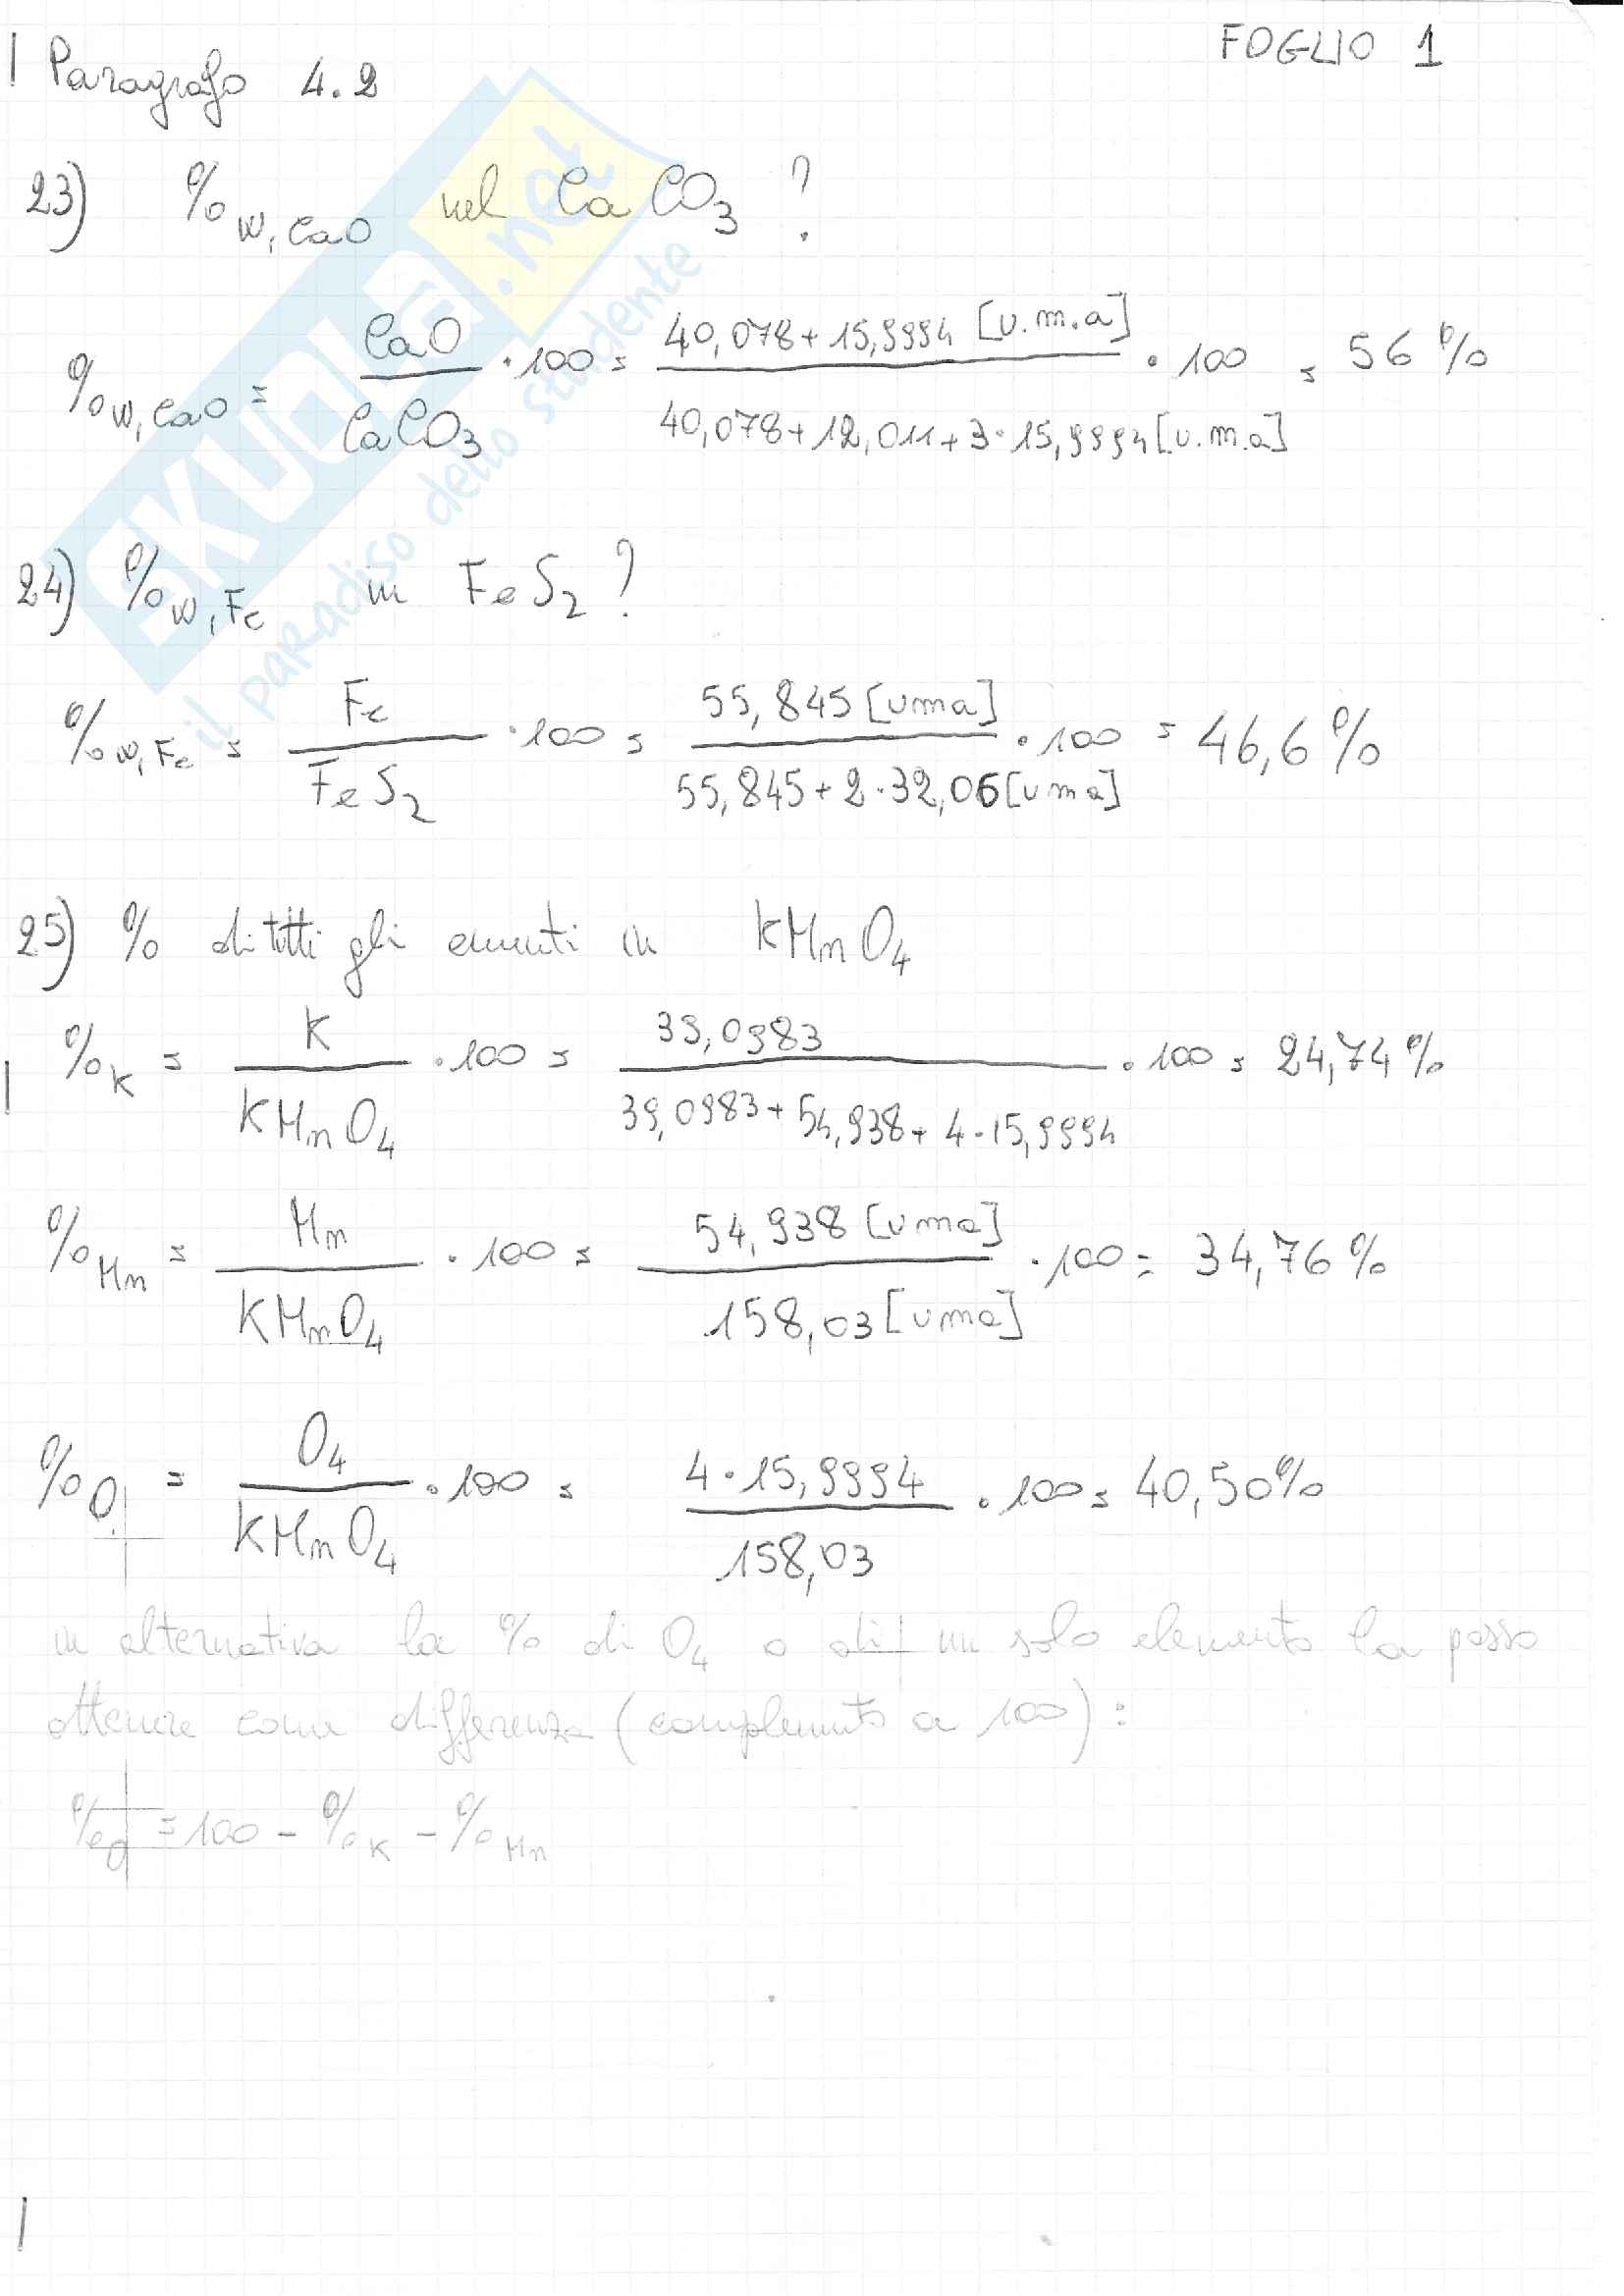 FOGLIO 1
Paragrafo 4.2
23) %w,CaO nel CaCO3 ?
%w,CaO = CaO / CaCO3 · 100 = 40,078 + 15,9994 [u.m.a] / 40,078 + 12,011 + 3 · 15,9994 [u.m.a] · 100 = 56 %
24) %w,Fe in FeS2 ?
%w,Fe = Fe / FeS2 · 100 = 55,845 [uma] / 55,845 + 2 · 32,06 [uma] · 100 = 46,6 %
25) % di tutti gli ementi in KMnO4
%K = K / KMnO4 · 100 = 39,0983 / 39,0983 + 54,938 + 4 · 15,9994 · 100 = 24,74 %
%Mn = Mn / KMnO4 · 100 = 54,938 [uma] / 158,03 [uma] · 100 = 34,76 %
%O = O4 / KMnO4 · 100 = 4 · 15,9994 / 158,03 · 100 = 40,50 %
in alternativa la % di O4 o di un solo elemento la posso
ottenere come differenza (complemento a 100) :
%O = 100 - %K - %Mn
SKUOLA.net
il paradiso dello studente